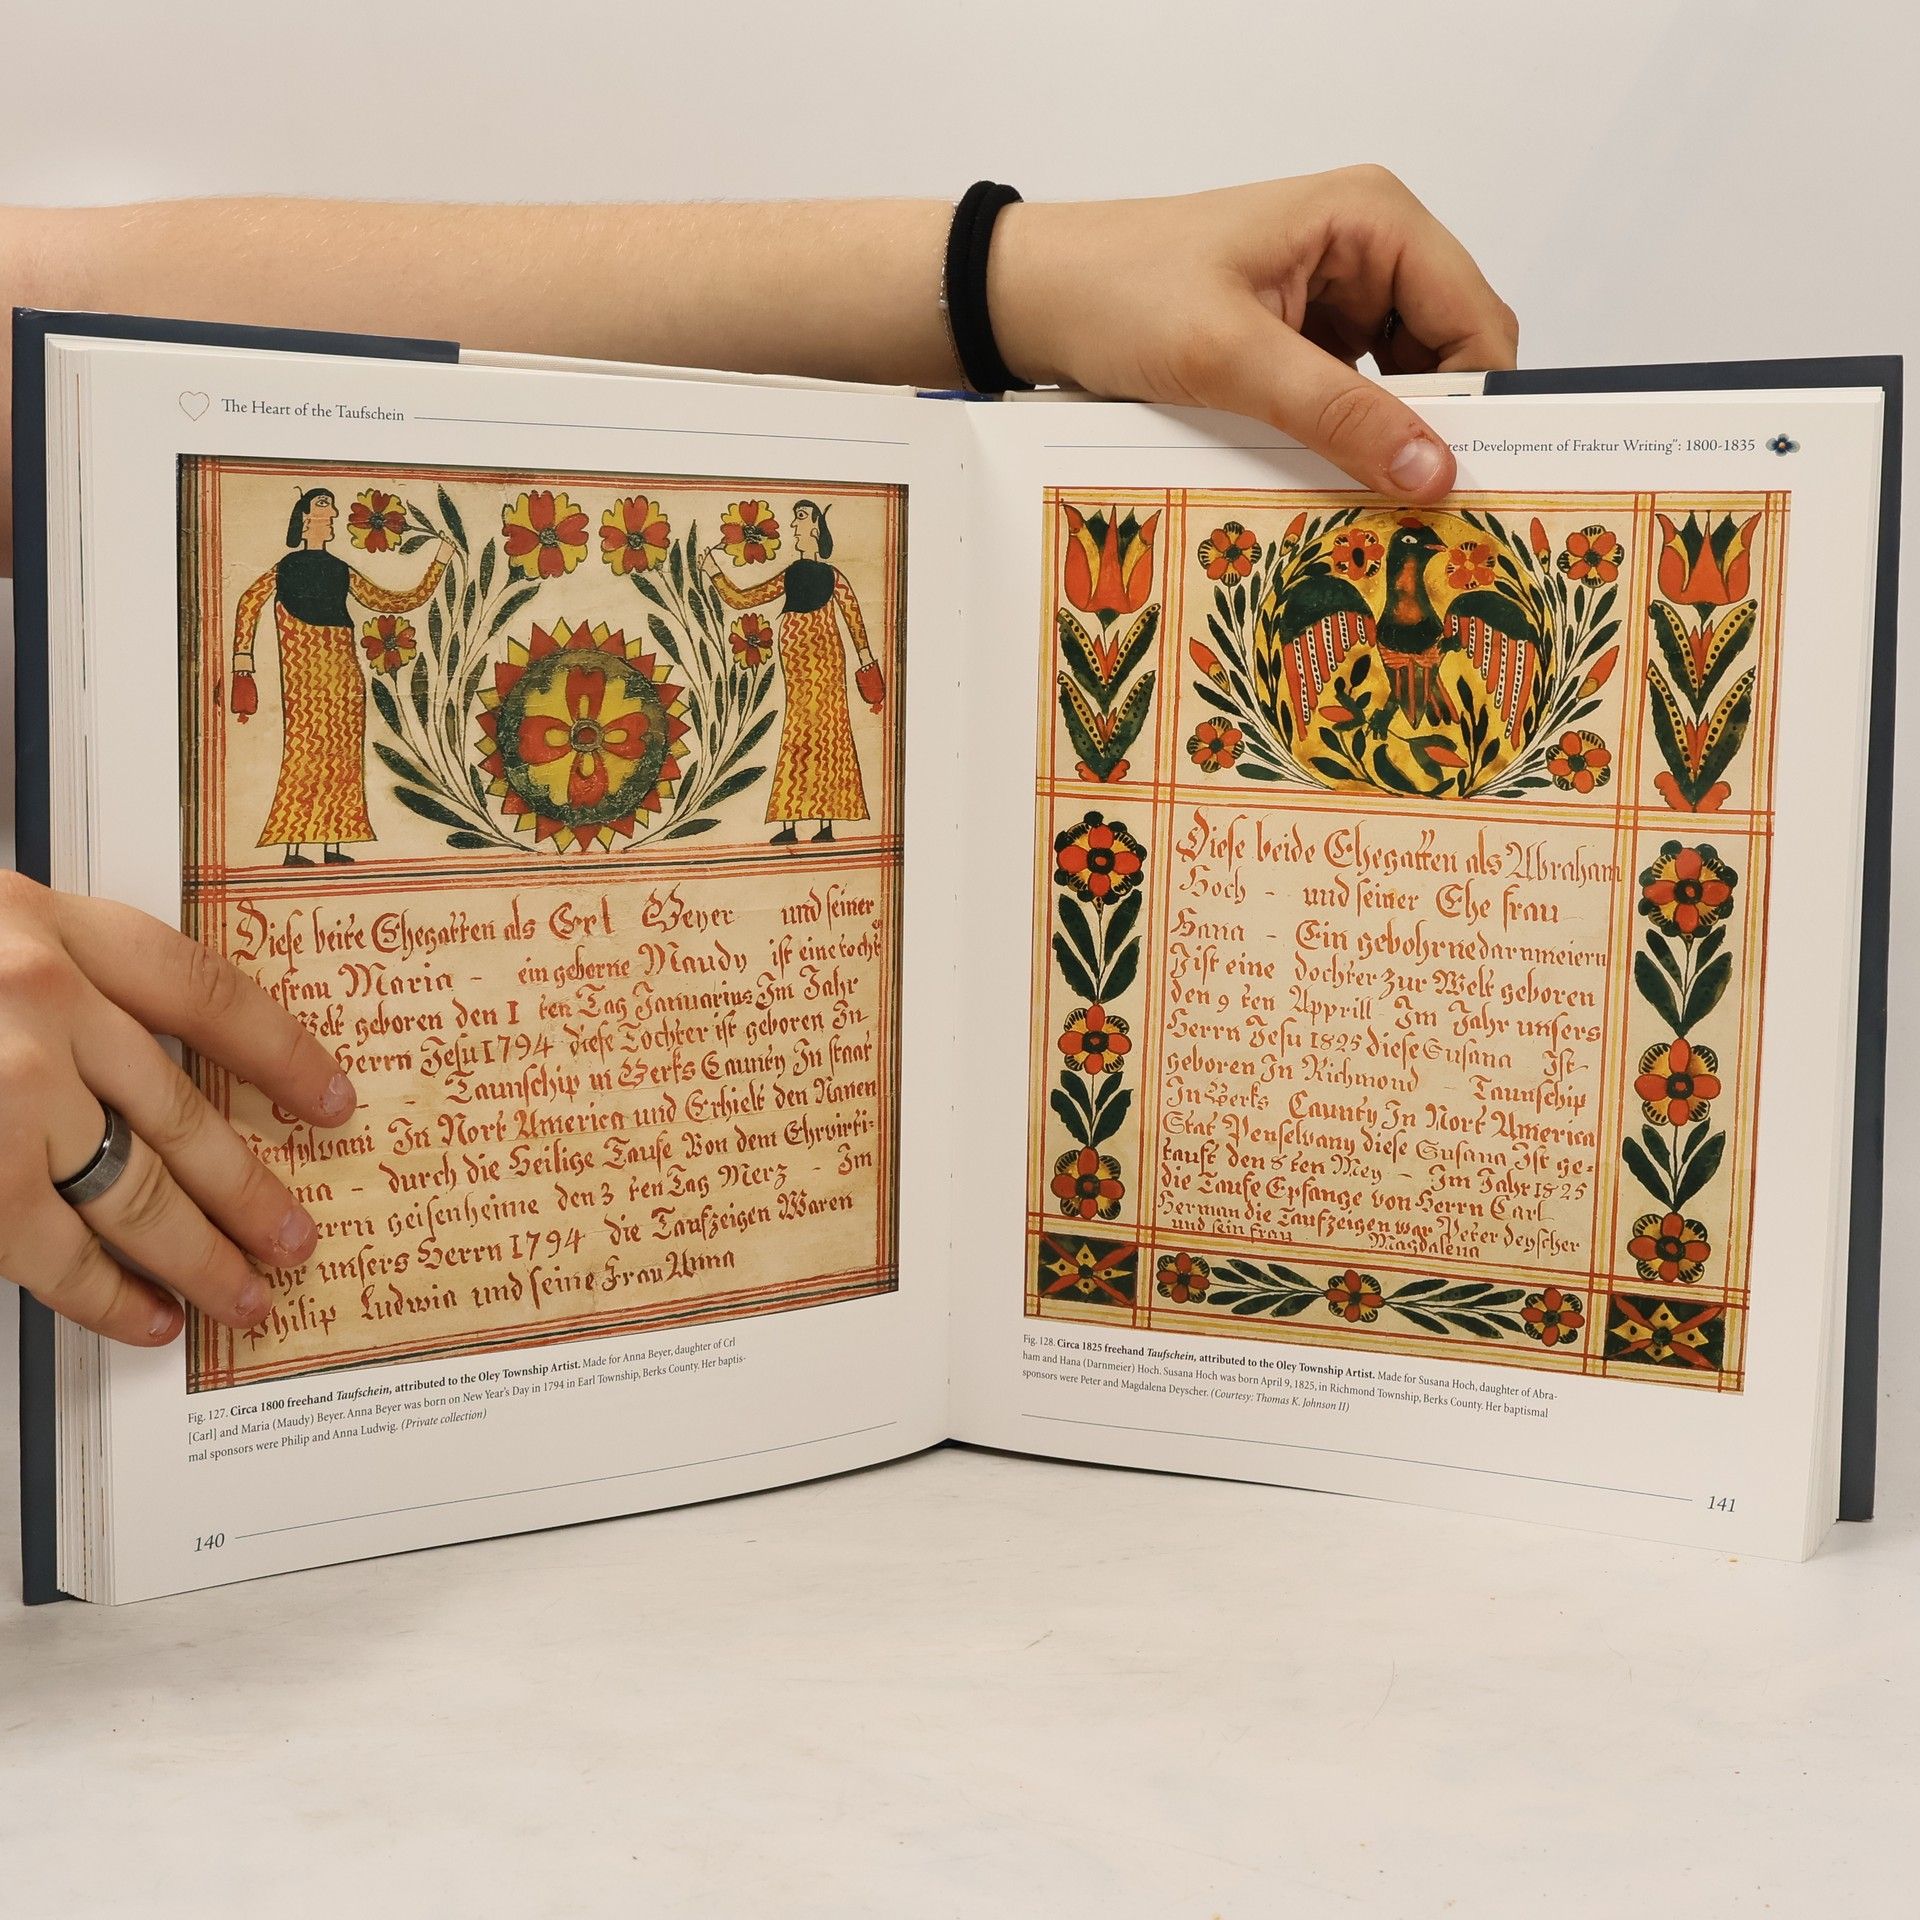 The Heart of the Taufschein
Diese beite Ehegatten als Crl Beyer und seiner
Maria - ein geborne Maudy ist eine tocht
Welt geboren den 1 ten Tag Januarius Im Jahr
Herrn Jesu 1794 diese Tochter ist geboren In
- - Taunschip in Berks Caunty In staat
Pensylvani In Nort America und Erhielt den Namen
- durch die Heilige Taufe Von dem Ehrvirti-
geisenheime den 3 ten Tag Merz - Im
unsers Herrn 1794 die Taufzeigen Waren
Philip Ludwig und seine Frau Anna
Fig. 127. Circa 1800 freehand Taufschein, attributed to the Oley Township Artist. Made for Anna Beyer, daughter of Crl
[Carl] and Maria (Maudy) Beyer. Anna Beyer was born on New Year's Day in 1794 in Earl Township, Berks County. Her baptis-
mal sponsors were Philip and Anna Ludwig. (Private collection)
140
Development of Fraktur Writing": 1800-1835
Diese beide Ehegatten als Abraham
Hoch - und seiner Ehe frau
Hana - Ein gebohrne darnmeiern
Ist eine dochter zur Welt geboren
den 9 ten Apprill Im Jahr unsers
Herrn Jesu 1825 diese Susana Ist
geboren In Richmond - Taunschip
In Berks Caunty In Nort America
Stat Penselvany diese Susana Ist ge=
tauft den 8 ten Mey - Im Jahr 1825
die Taufe Epfange von Herrn Carl
Herman die Taufzeigen war Peter Deyscher
und sein frau Magdalena
Fig. 128. Circa 1825 freehand Taufschein, attributed to the Oley Township Artist. Made for Susana Hoch, daughter of Abra-
ham and Hana (Darnmeier) Hoch. Susana Hoch was born April 9, 1825, in Richmond Township, Berks County. Her baptismal
sponsors were Peter and Magdalena Deyscher. (Courtesy: Thomas K. Johnson II)
141